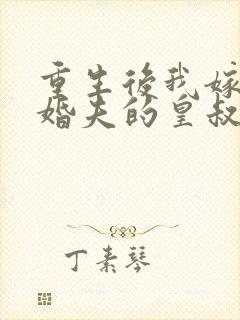 重生後我嫁
婚夫的皇叔
丁素琴